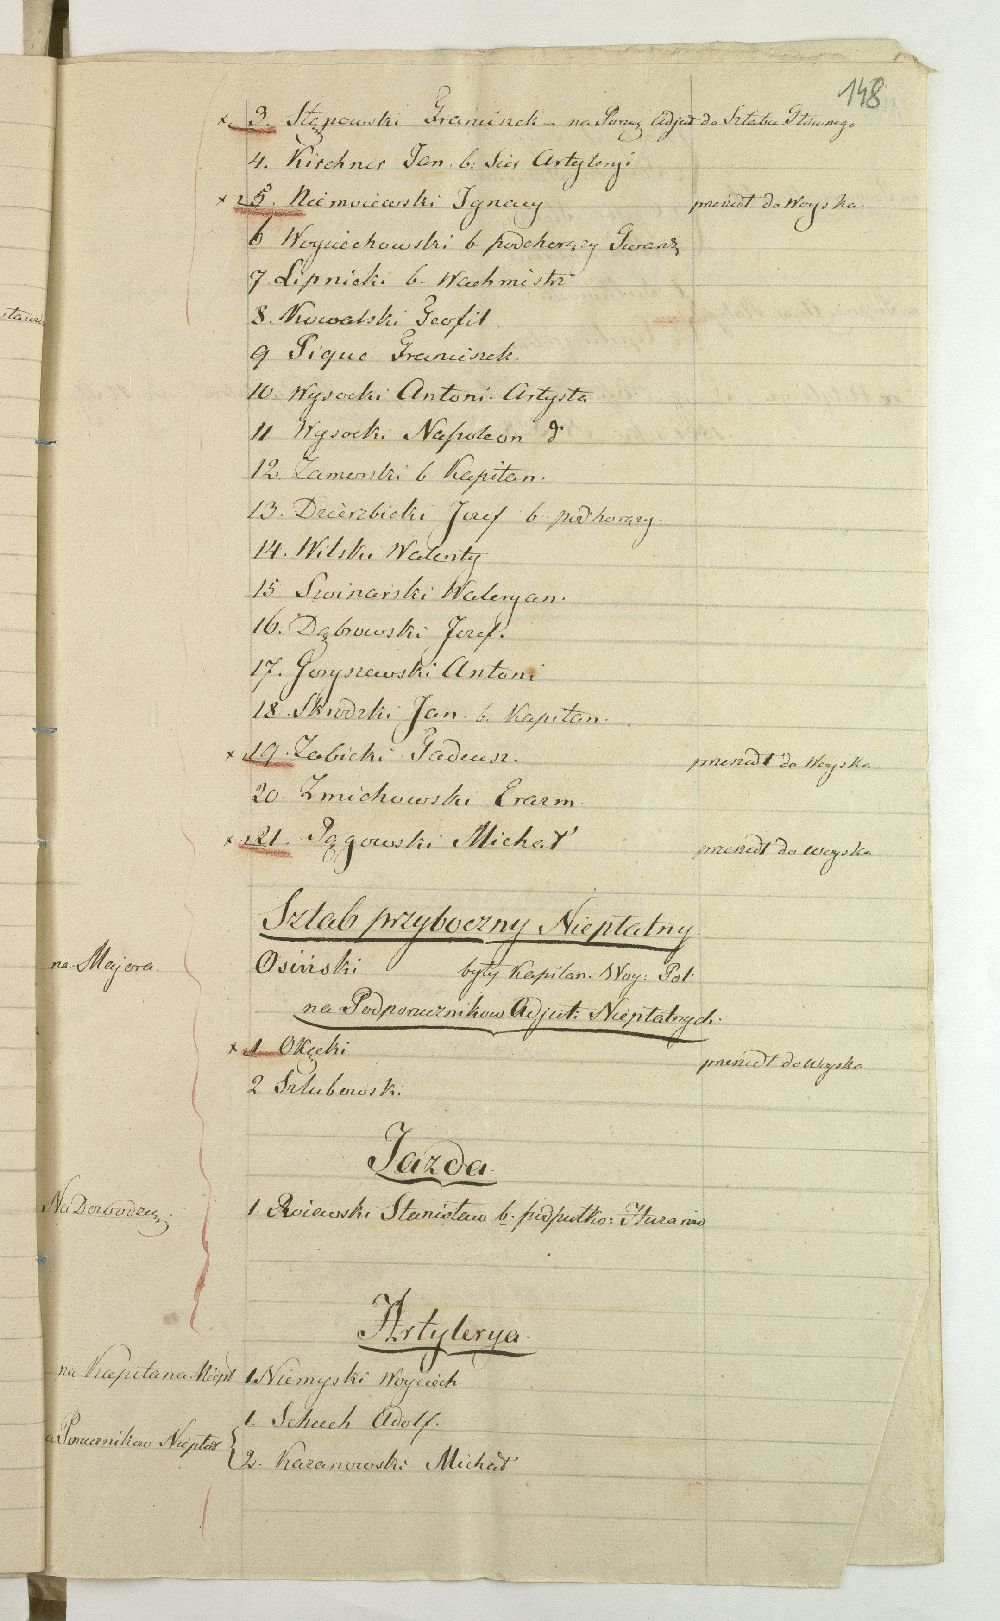 148
x 3. Stępowski Franciszek - na Porucz Adjut do Sztabu Głównego
4. Kirchner Jan b: Sier Artyleryi
x 5. Niemoiewski Ignacy przeszedł do Woyska.
6 Woyciechowski b podchorąży Gwardz
7. Lipnicki b. Wachmistrz
8. Kowalski Teofil
9 Pique Franciszek.
10. Wysocki Antoni. Artysta
11 Wysocki Napoleon d°
12. Zamorski b Kapitan.
13. Dzierzbicki Jozef b. podhorąży.
14. Wilski Walenty
15 Swinarski Waleryan.
16. Dąbrowski Jozef.
17. Goryszewski Antoni
18. Skrodzki Jan. b. Kapitan.
x 19. Zabicki Tadeusz. przeszedł do Woyska
20. Zmichowski Erazm
x 21. Pągowski Michał przeszedł do Woyska
Sztab przyboczny Niepłatny
na Majora. Osiński były Kapitan. Woy: Pol.
na Podporucznikow Adjut: Niepłatnych.
x 1. Okęcki przeszedł do Woyska
2 Szlubowsk.
Jazda.
Na Dowodzcę. 1. Roiewski Stanisław b. podpułko: Huzarow
Artylerya.
na Kapitana. Niepł 1. Niemyski Woyciech
1. Schuch Adolf.
Porucznikow Niepłat 2. Kazanowski Michał